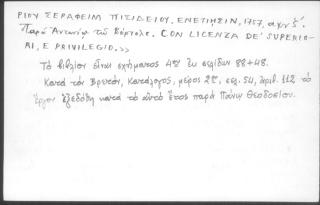 ΡΙΟΥ ΣΕΡΑΦΕΙΜ ΠΙΣΙΔΕΙΟΥ. ΕΝΕΤΙΗΣΙΝ, 1757, αψνζ΄.
Παρά Ἀντωνίῳ τῷ Βόρτολι. CON LICENZA DE' SUPERIO-
RI, E PRIVILEGIO.>>
Τό βιβλίον εἶναι σχήματος 4ον ἐκ σελίδων 88+48.
Κατά τόν Βρετόν, Κατάλογος, μέρος 2ον, σελ. 54, ἀριθ. 112 τό
ἔργον ἐξεδόθη κατά τό αὐτό ἔτος παρά Πάνῳ Θεοδοσίου.